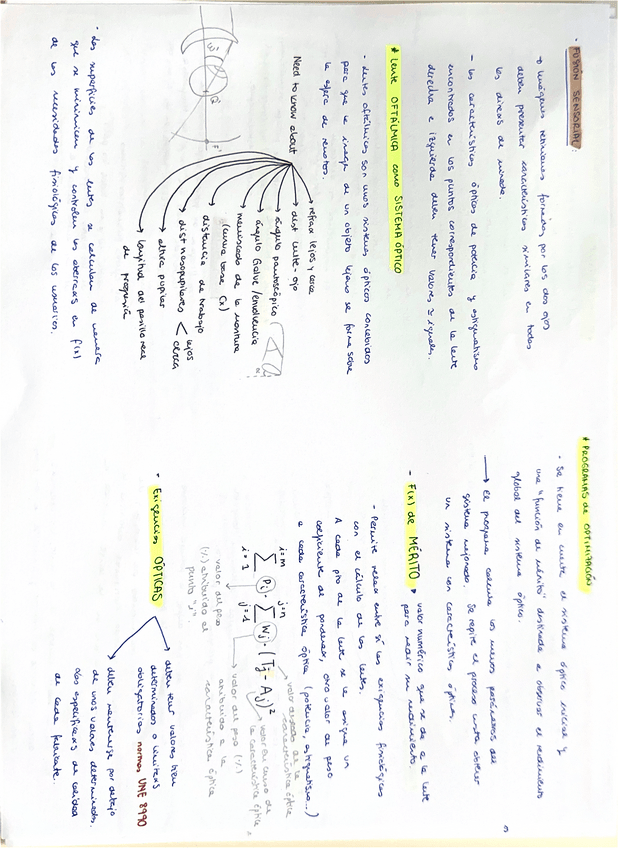 · FUSIÓN SENSORIAL:
→ Imágenes retinianas formadas por los dos ojos
deben presentar características similares en todas
las direcs de mirada.
- Las características ópticas de potencia y astigmatismo
encontradas en los puntos correspondientes de la lente
derecha e izquierda deben tener valores iguales.
* LENTE OFTÁLMICA COMO SISTEMA ÓPTICO
- Lentes oftálmicas son unos sistemas ópticos concebidos
para que la imagen de un objeto lejano se forme sobre
la esfera de remotos.
Need to know about
refrax lejos y cerca
dist lente-ojo
ángulo pantoscópico
ángulo Galve/envolvencia
meniscado de la montura
(curva base CR)
distancia de trabajo
dist nasopupilares < lejos
cerca
altura pupilar
longitud del pasillo real
de progresión
· Las superficies de las lentes se calculan de manera
que se minimicen y controlen las aberracs en f(x)
de las necesidades fisiológicas de los usuarios.
* PROGRAMAS DE OPTIMIZACIÓN
- Se tiene en cuenta el sistema óptico inicial y
una "función de mérito" destinada a observar el rendimiento
global del sistema óptico.
→ El programa calcula los nuevos parámetros del
sistema mejorado. Se repite el proceso hasta obtener
un sistema con características óptimas.
- F(x) de MÉRITO → valor numérico que se da a la lente
para medir su rendimiento.
- Permite relacs entre sí las exigencias fisiológicas
con el cálculo de las lentes.
A cada pto de la lente se le asigna un
coeficiente de ponderac, otro valor de peso
a cada característica óptica (potencia, astigmatismo...)
i=m j=n
∑ Pi · ∑ Wj · (Tj - Aj)²
i=1 j=1
característica óptica
valor en curso de
la característica óptica
valor del peso (%)
atribuido a la
característica óptica
valor del peso
(%) atribuido al
punto "i"
- Exigencias ÓPTICAS
deben tener valores bien
determinados o límites
obligatorios normas UNE 8990
deben mantenerse por debajo
de unos valores determinados.
de calidad
de cada fabricante.